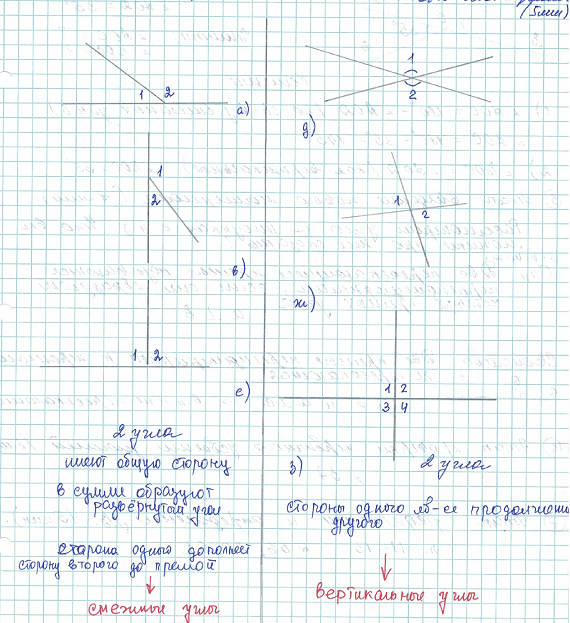 (5мин)
1 2
а)
1
2
д)
1
2
в)
1
2
ж)
1 2
е)
1 2
3 4
з)
2 угла
имеют общую сторону
в сумме образуют
развёрнутый угол
сторона одного дополняет
сторону второго до прямой
смежные углы
2 угла
стороны одного яв-ся продолжением
другого
вертикальные углы